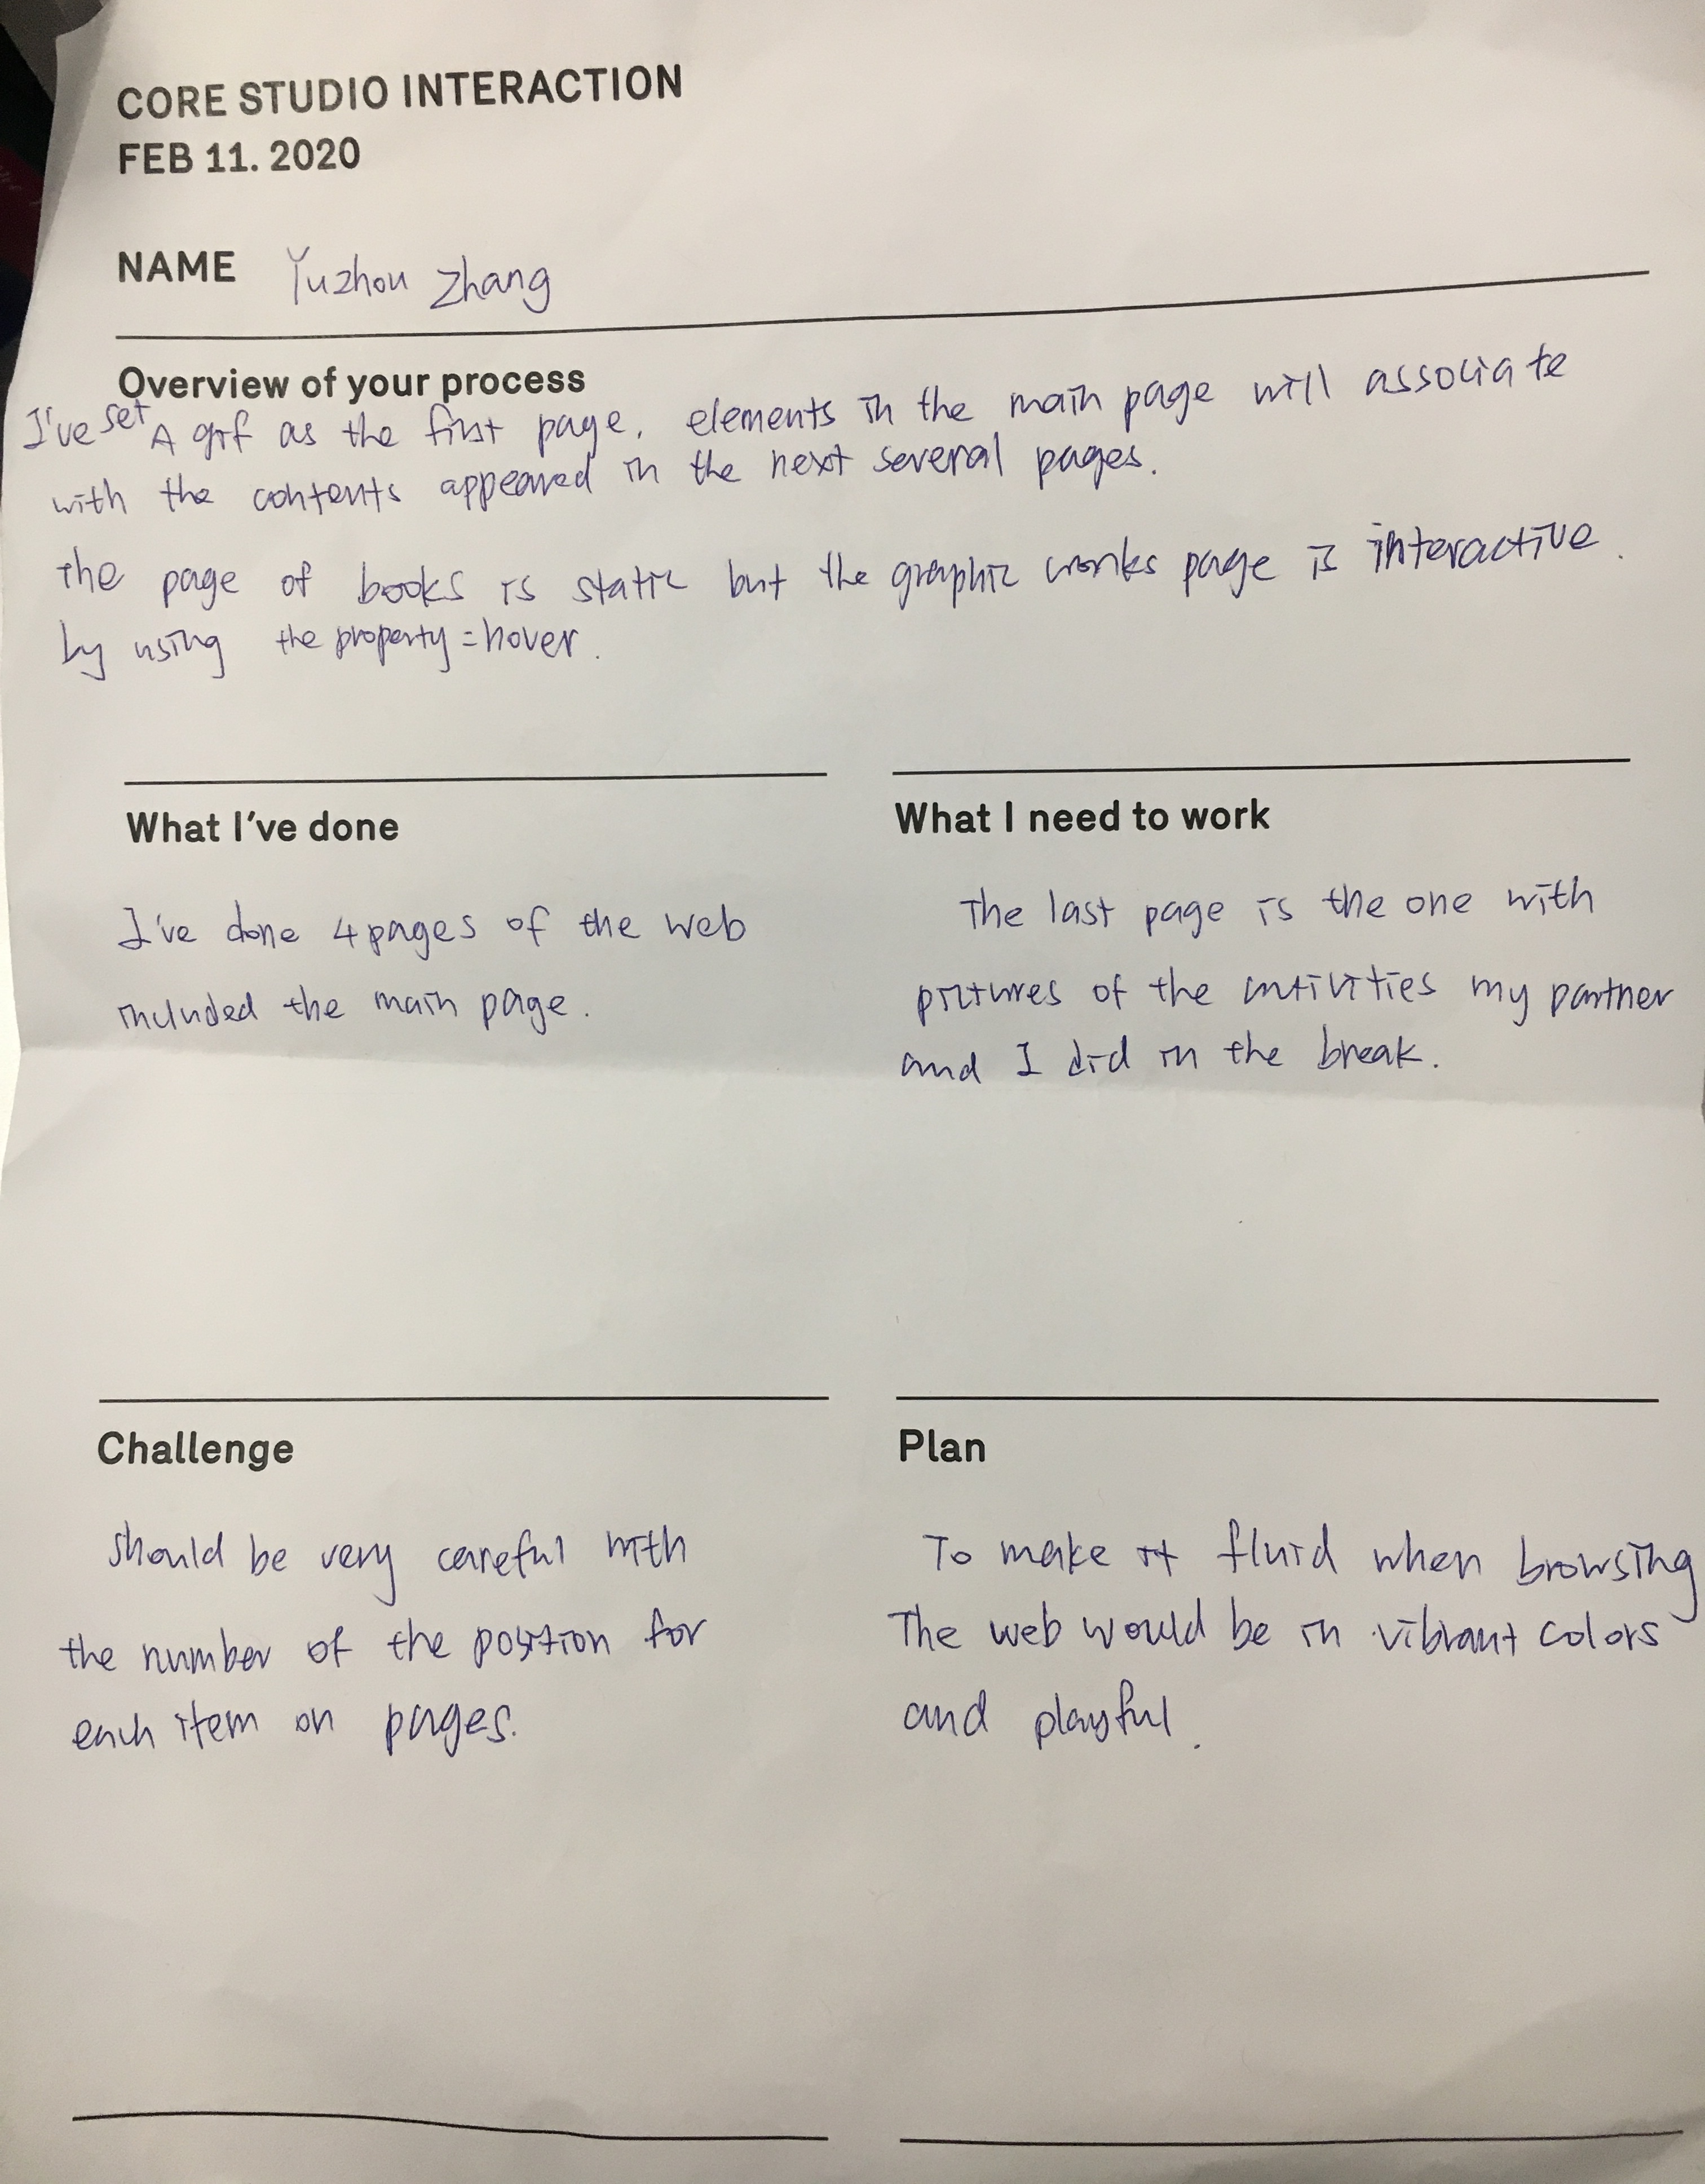 CORE STUDIO INTERACTION
FEB 11. 2020
NAME Yuzhou Zhang
Overview of your process
I've set A gif as the first page, elements in the main page will associate
with the contents appeared in the next several pages.
The page of books is static but the graphic works page is interactive.
by using the property = hover.
What I've done
I've done 4 pages of the web
included the main page.
What I need to work
The last page is the one with
pictures of the activities my partner
and I did in the break.
Challenge
should be very careful with
the number of the position for
each item on pages.
Plan
To make it fluid when browsing
The web would be in vibrant colors
and playful.